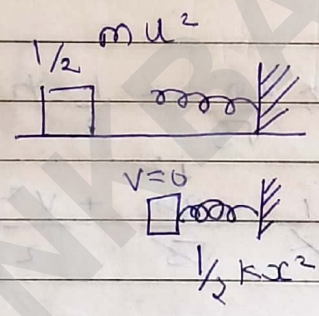 1/2 mu²
V=0
1/2 kx²